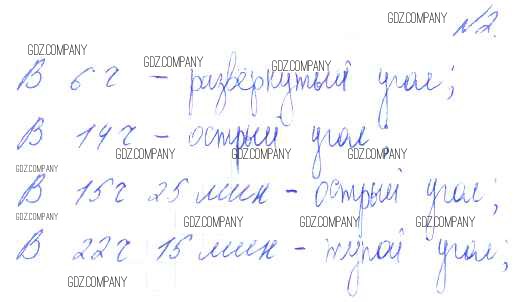 №2.
В 6ч – развёркутый угол;
В 14ч – острый угол;
В 15ч 25 мин – острый угол;
В 22ч 15 мин – тупой угол;
GDZ.COMPANY
GDZ.COMPANY
GDZ.COMPANY
GDZ.COMPANY
GDZ.COMPANY
GDZ.COMPANY
GDZ.COMPANY
GDZ.COMPANY
GDZ.COMPANY
GDZ.COMPANY
GDZ.COMPANY
GDZ.COMPANY
GDZ.COMPANY